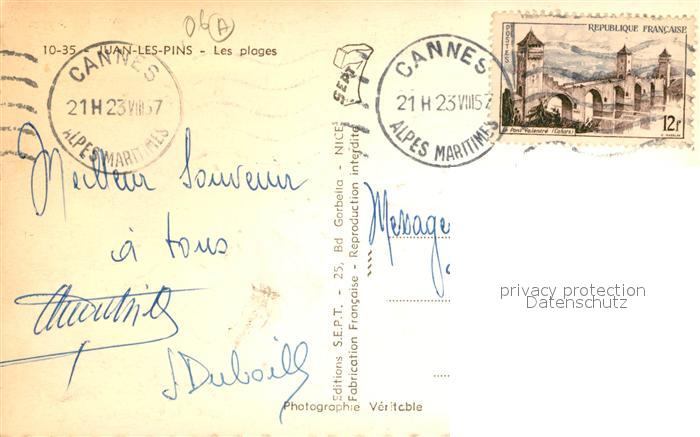 06 A
10-35 - JUAN-LES-PINS - Les plages
CANNES
21H 23 VIII 57
ALPES MARITIMES
SEPT
CANNES
21H 23 VIII 57
ALPES MARITIMES
POSTES
REPUBLIQUE FRANÇAISE
Pont Valentré (Cahors)
12F
Meilleur Souvenir
à tous
Message
Editions S.E.P.T. - 25, Bd Gorbella - NICE
Fabrication Française - Reproduction interdite
Photographie Véritable
privacy protection
Datenschutz